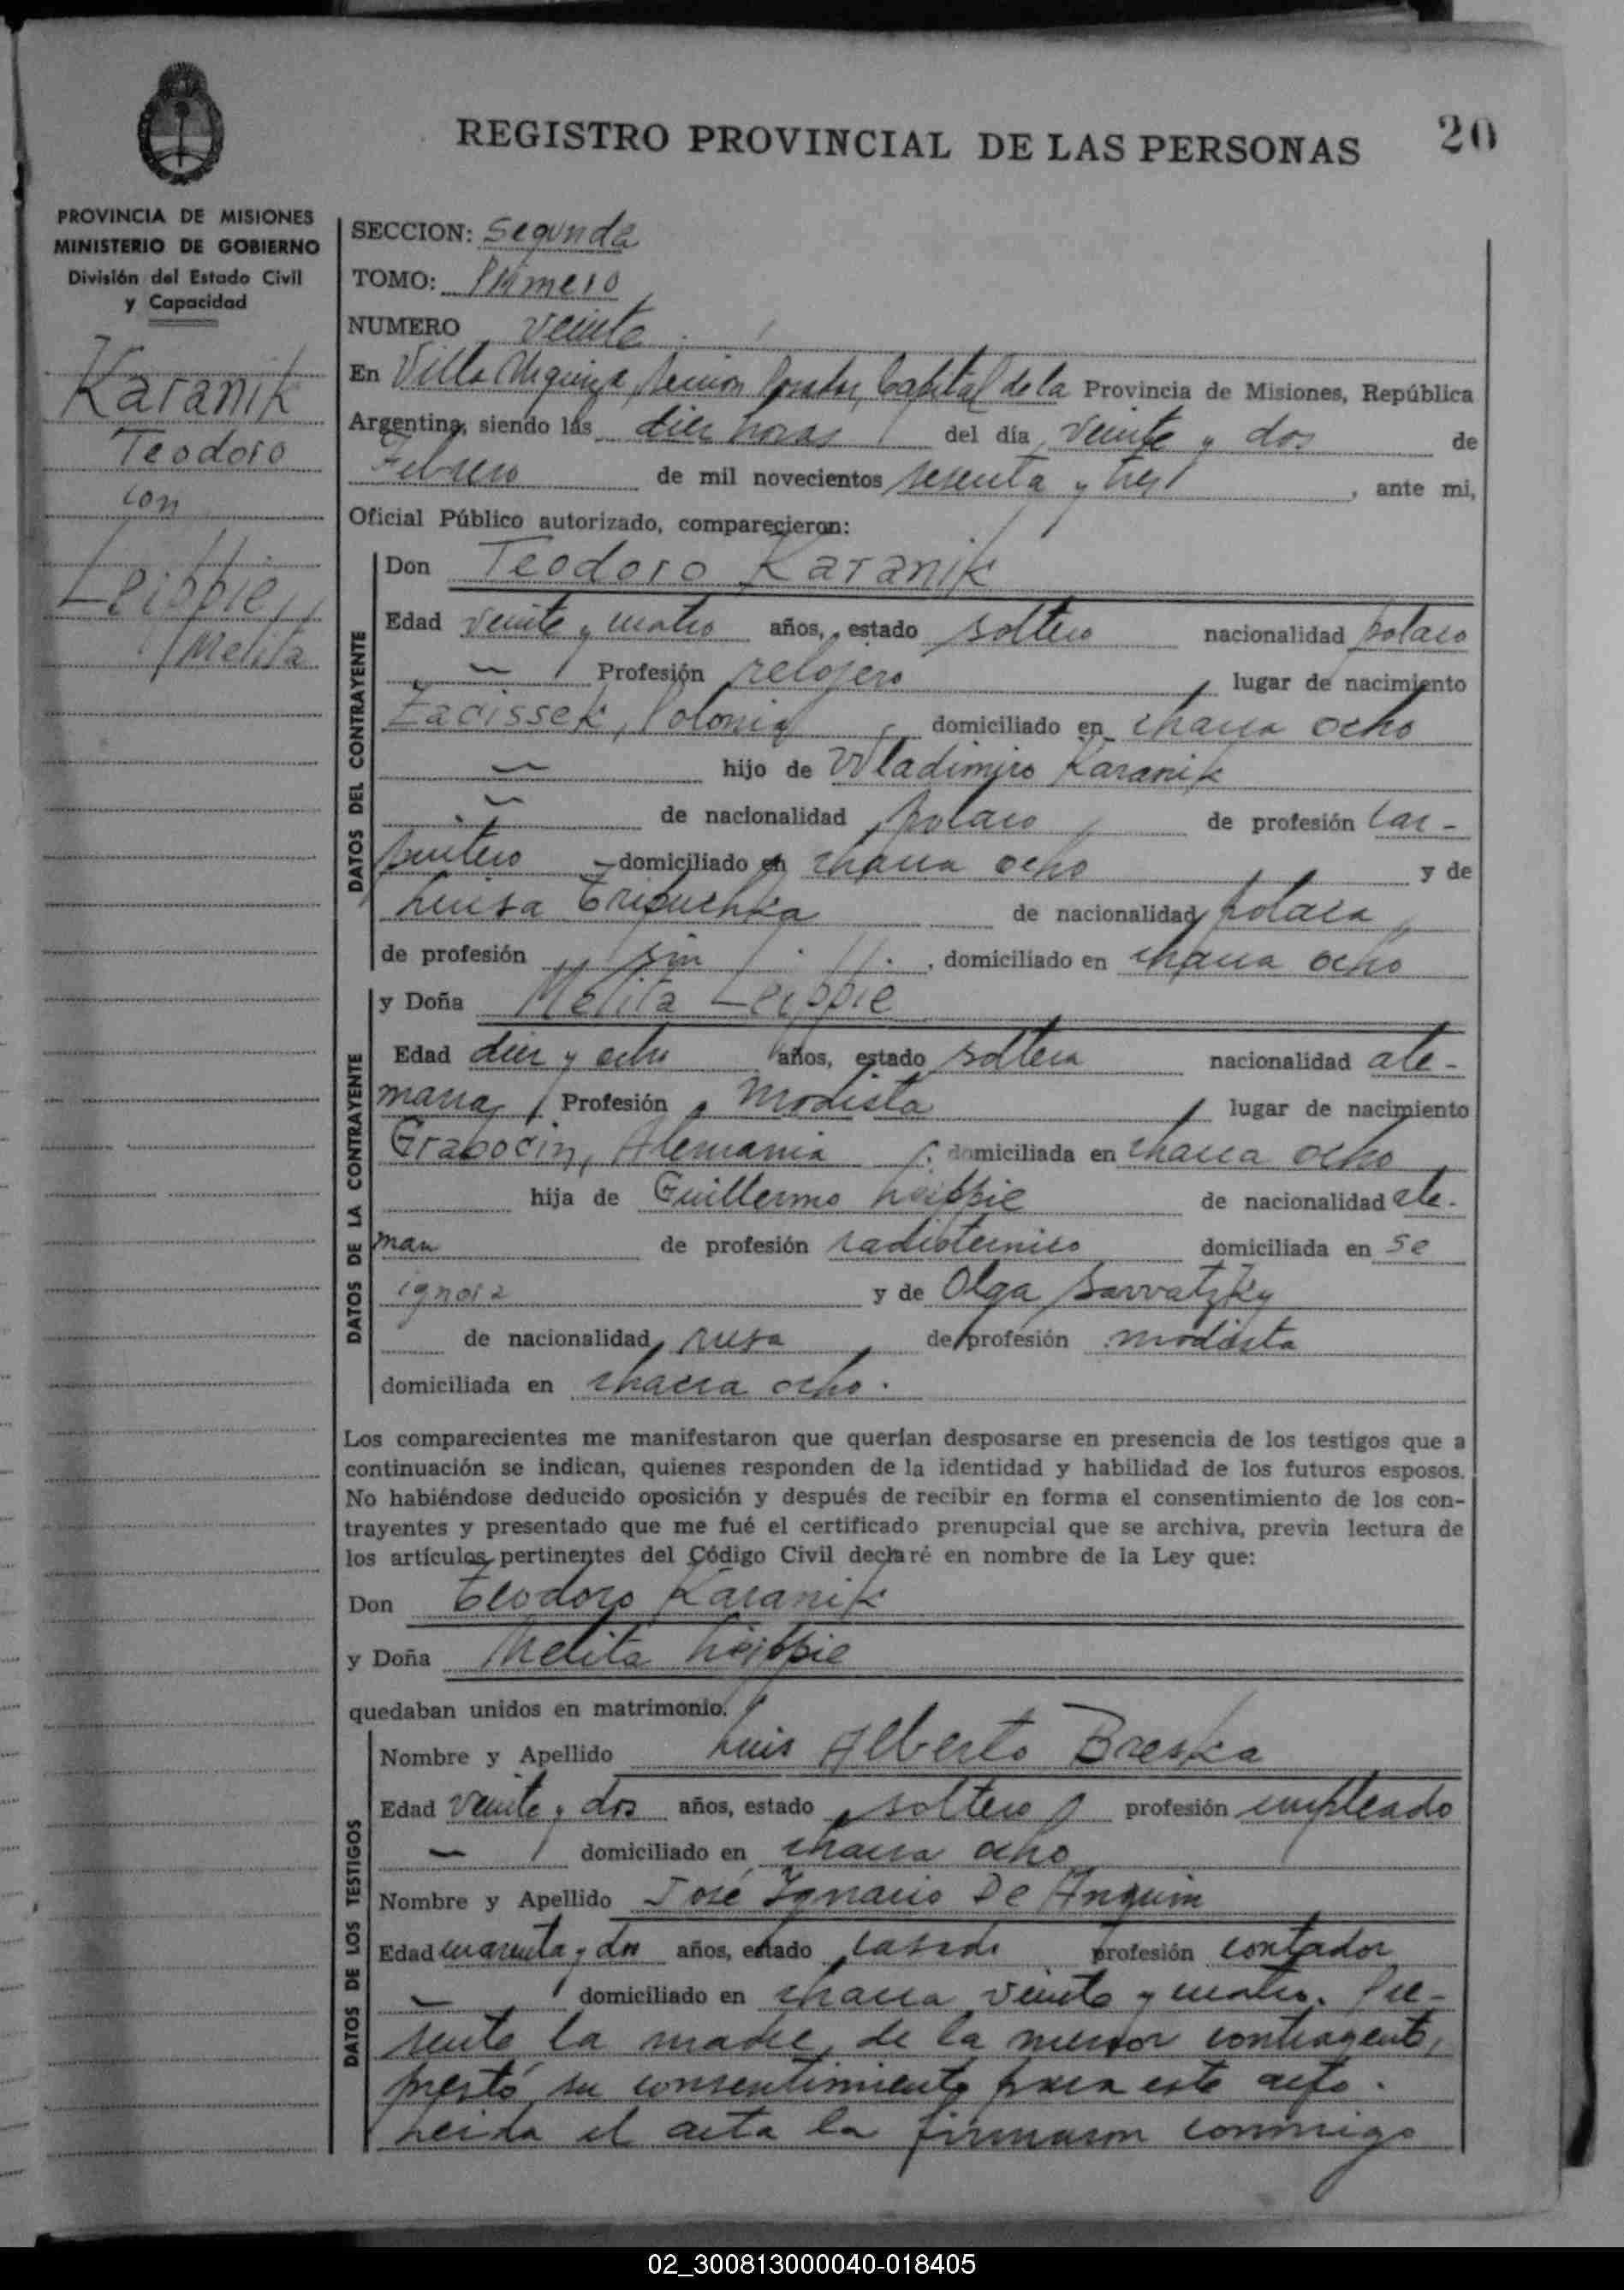 REGISTRO PROVINCIAL DE LAS PERSONAS
20
PROVINCIA DE MISIONES
MINISTERIO DE GOBIERNO
División del Estado Civil
y Capacidad
Karanik
Teodoro
con
Leippie,
Melita
SECCION: Segunda
TOMO: Primero
NUMERO veinte.
En Villa Urquiza, Capital de la Provincia de Misiones, República
Argentina, siendo las diez horas del día veinte y dos de
Febrero de mil novecientos sesenta y tres, ante mi,
Oficial Público autorizado, comparecieron:
DATOS DEL CONTRAYENTE
Don Teodoro Karanik
Edad veinte y cuatro años, estado soltero nacionalidad polaco
Profesión relojero lugar de nacimiento
Polonia domiciliado en chacra ocho
hijo de Wladimiro Karanik
de nacionalidad polaco de profesión car-
pintero domiciliado en chacra ocho y de
Luisa de nacionalidad polaca,
de profesión sin, domiciliado en chacra ocho
DATOS DE LA CONTRAYENTE
y Doña Melita Leippie
Edad diez y ocho años, estado soltera nacionalidad ale-
mana, Profesión Modista lugar de nacimiento
Grabocin, Alemania domiciliada en chacra ocho
hija de Guillermo Leippie de nacionalidad ale-
man de profesión radiotecnico domiciliada en se
ignora y de Olga
de nacionalidad rusa de profesión modista
domiciliada en chacra ocho.
Los comparecientes me manifestaron que querían desposarse en presencia de los testigos que a
continuación se indican, quienes responden de la identidad y habilidad de los futuros esposos.
No habiéndose deducido oposición y después de recibir en forma el consentimiento de los con-
trayentes y presentado que me fué el certificado prenupcial que se archiva, previa lectura de
los artículos pertinentes del Código Civil declaré en nombre de la Ley que:
Don Teodoro Karanik
y Doña Melita Leippie
quedaban unidos en matrimonio.
DATOS DE LOS TESTIGOS
Nombre y Apellido Luis Alberto Breska
Edad veinte y dos años, estado soltero profesión empleado
domiciliado en chacra ocho
Nombre y Apellido José Ignacio De Anquin
Edad cuarenta y dos años, estado casado profesión contador
domiciliado en chacra veinte y cuatro. Pre-
sente la madre de la menor contrayente,
prestó su consentimiento para este acto.
Leida el acta la firmaron conmigo
02_300813000040-018405